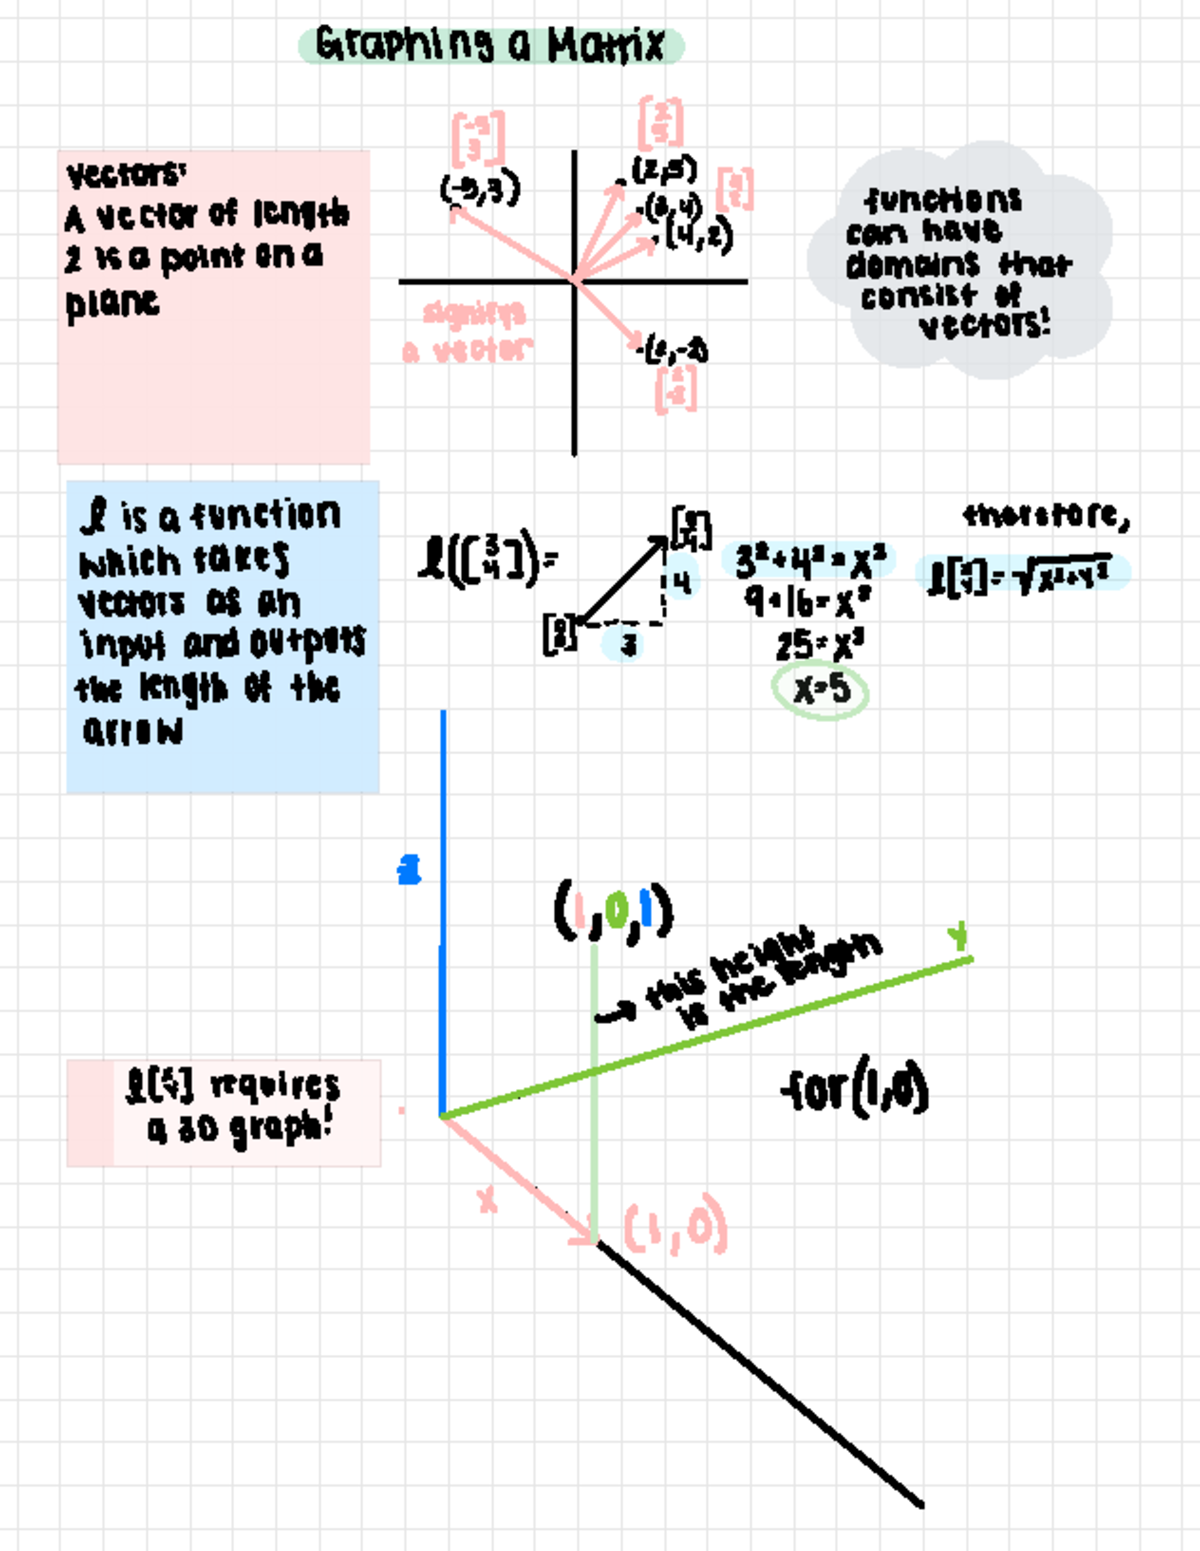 Graphing a Matrix
vectors:
A vector of length
2 is a point on a
plane
[-5 3]
(-5,3)
(2,5)
(3,4)
(4,2)
signifys
a vector
[2 -2]
functions
can have
domains that
consist of
vectors!
l is a function
which takes
vectors as an
input and outputs
the length of the
arrow
l([3 4])=
[0 0]
4
3
3²+4²=x²
9+16=x²
25=x²
x=5
therefore,
l[x y]=√x²+y²
z
(1,0,1)
→ this height
is the length
y
for (1,0)
l[x y] requires
a 3D graph!
x
(1,0)